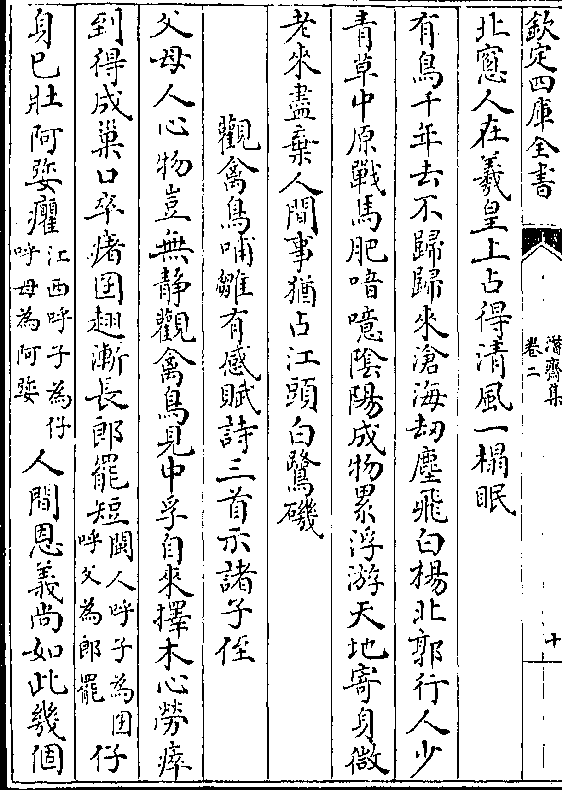 欽定四庫全書
潛齋集
卷二
十
北窓人在羲皇上占得清風一榻眠
有鳥千年去不歸歸來滄海劫塵飛白楊北郭行人少
青草中原戰馬肥喑噫陰陽成物累浮游天地寄身微
老來盡棄人間事猶占江頭白鷺磯
觀禽鳥哺雛有感賦詩三首示諸子侄
父母人心物豈無静觀禽鳥見中孚自來擇木心勞瘁
到得成巢口卒瘏囝翅漸長郎罷短閩人呼子為囝呼父為郎罷仔
身已壯阿癯江西呼子為仔呼母為阿人間恩義尚如此幾個